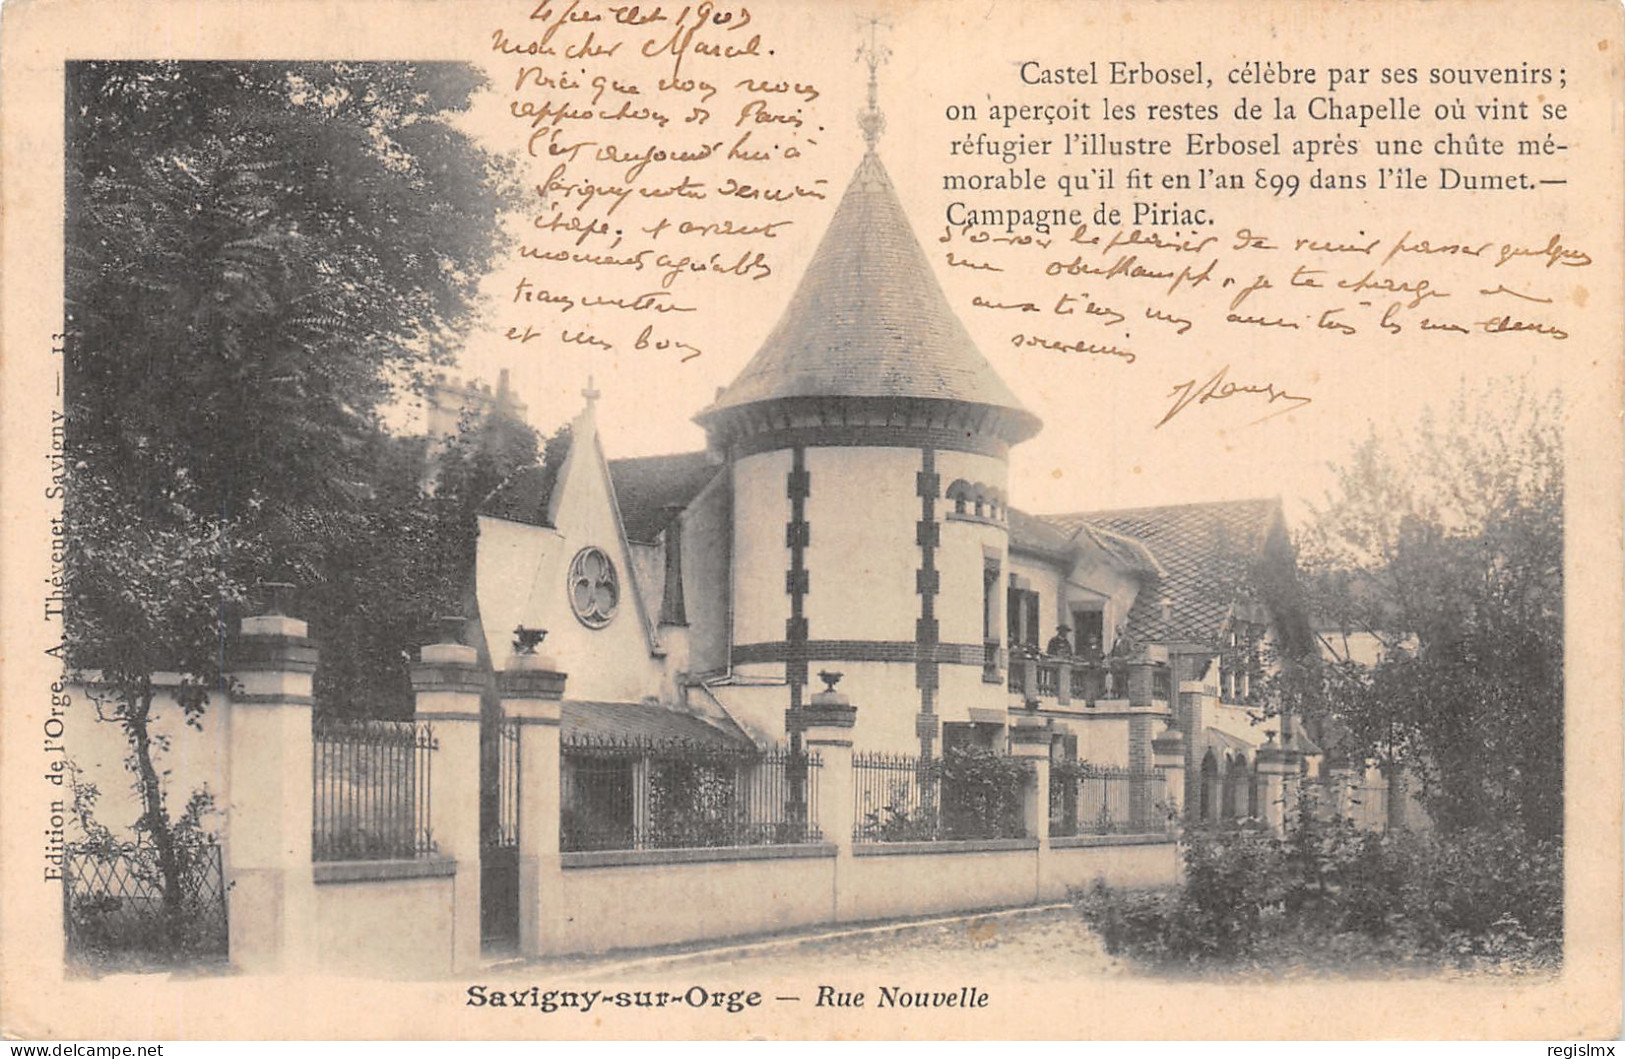 4 juillet 1903
Mon cher Marcel.
Voici que nous nous
rapprochons de Paris.
C'est aujourd'hui à
Savigny notre dernière
étape. et avant
moments agréables
transmettre
et nos bons
Castel Erbosel, célèbre par ses souvenirs ;
on aperçoit les restes de la Chapelle où vint se
réfugier l'illustre Erbosel après une chûte mé-
morable qu'il fit en l'an 899 dans l'île Dumet.—
Campagne de Piriac.
d'avoir le plaisir de venir passer quelques
rue Oberkampf, je te charge de
aux tiens nos amitiés les meilleures
souvenirs
Edition de l'Orge, A. Thévenet, Savigny — 13
Savigny-sur-Orge — Rue Nouvelle
regislmx